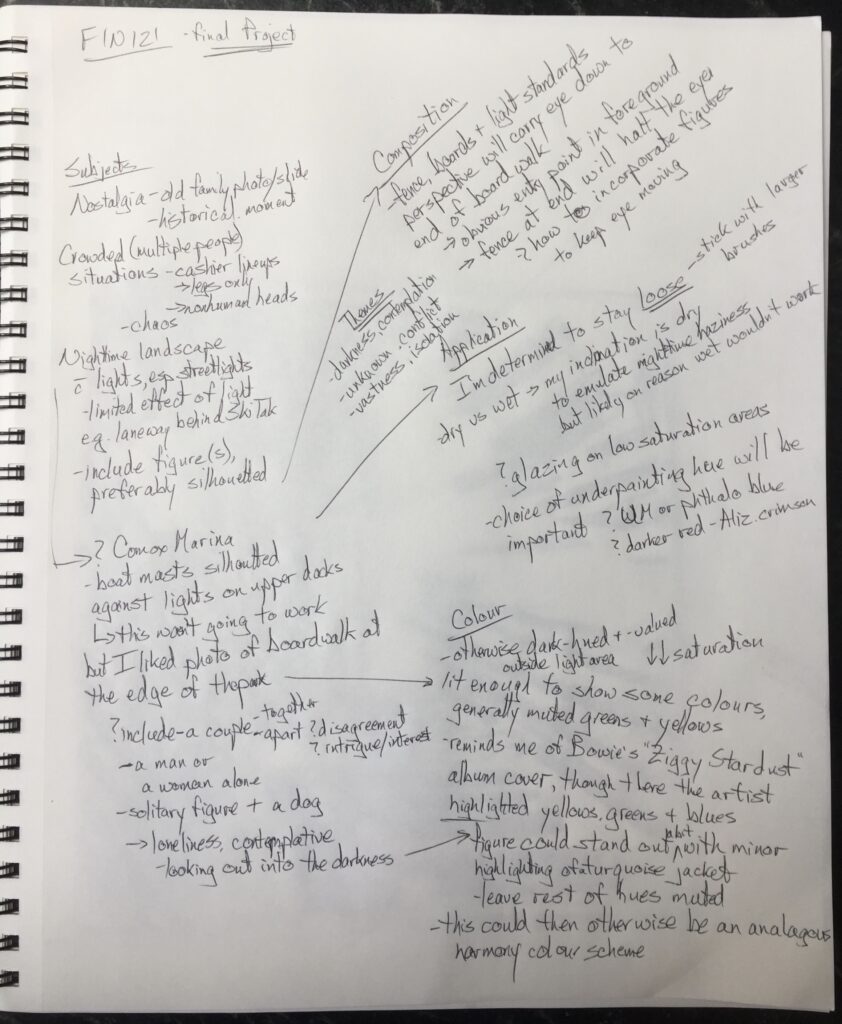 FIN121 - final Project
Subjects
Nostalgia - old family photo/slide
- historical moment
Crowded (multiple people)
situations - cashier lineups
→ legs only
→ nonhuman heads
- chaos
Nighttime landscape
c̄ lights, esp. streetlights
- limited effect of light
e.g. laneway behind SkiTak
- include figure(s),
preferably silhouetted
? Comox Marina
- boat masts silhoutted
against lights on upper docks
↳ this won't going to work
but I liked photo of boardwalk at
the edge of the park
? include - a couple - together
- apart ? disagreement
? intrigue/interest
- a man or
a woman alone
- solitary figure + a dog
→ loneliness, contemplative
- looking out into the darkness
Composition
- fence, boards + light standards
perspective will carry eye down to
end of board walk
→ obvious entry point in foreground
→ fence at end will halt the eye
? how to incorporate figures
to keep eye moving
Themes
- darkness, contemplation
- unknown, conflict
- vastness, isolation
Application
I'm determined to stay loose - stick with larger
brushes
dry vs wet → my inclination is dry
to emulate nighttime haziness
but likely on reason wet wouldn't work
? glazing on low saturation areas
- choice of underpainting here will be
important ? UM or phthalo blue
? darker red - Aliz. crimson
Colour
- otherwise dark-hued + -valued
outside light area ↓↓ saturation
lit enough to show some colours,
generally muted greens + yellows
- reminds me of Bowie's "Ziggy Stardust"
album cover, though there the artist
highlighted yellows, greens + blues
figure could stand out a bit with minor
highlighting of a turquoise jacket
- leave rest of hues muted
- this could then otherwise be an analagous
harmony colour scheme